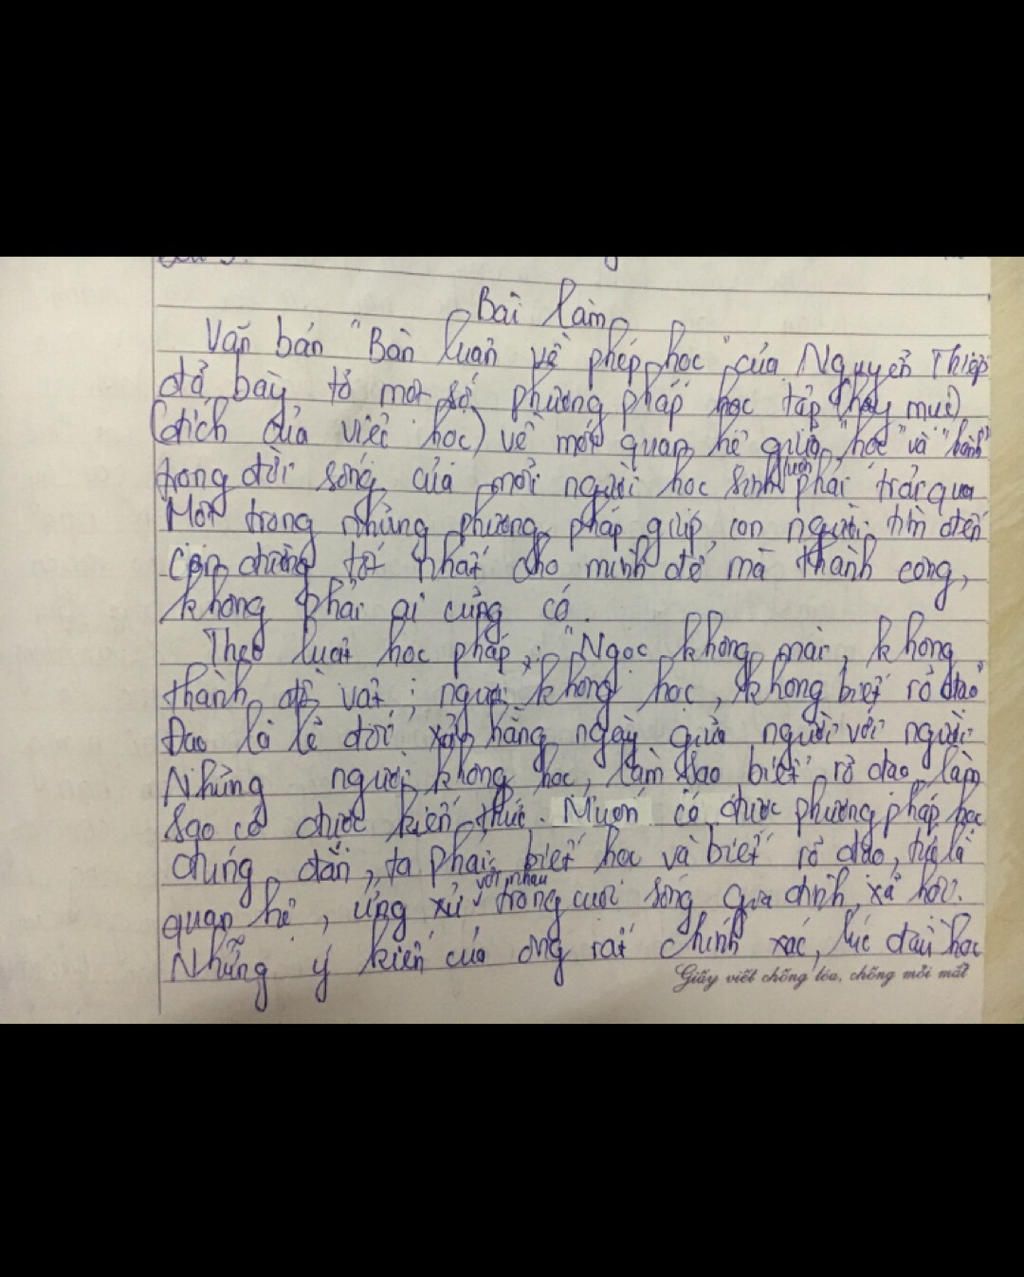 Bài làm
Văn bản "Bàn luận về phép học" của Nguyễn Thiếp
đã bày tỏ một số phương pháp học tập (hay mục
đích của việc học) về mối quan hệ giữa "học" và "hành"
trong đời sống của mỗi người học sinh luôn phải trải qua
Một trong những phương pháp giúp con người tìm đến
con đường tốt nhất cho mình để mà thành công,
không phải ai cũng có.
Theo luật học pháp, : "Ngọc không mài, không
thành đồ vật ; người không học, không biết rõ đạo"
Đạo là lẽ đối xử hằng ngày giữa người với người
Những người không học, làm sao biết rõ đạo, làm
sao có được kiến thức. Muốn có được phương pháp học
đúng đắn, ta phải biết học và biết rõ đạo, tức là
quan hệ, ứng xử với nhau trong cuộc sống gia đình, xã hội.
Những ý kiến của ông rất chính xác, lúc đầu học
Giấy viết chống lóa, chống mỏi mắt